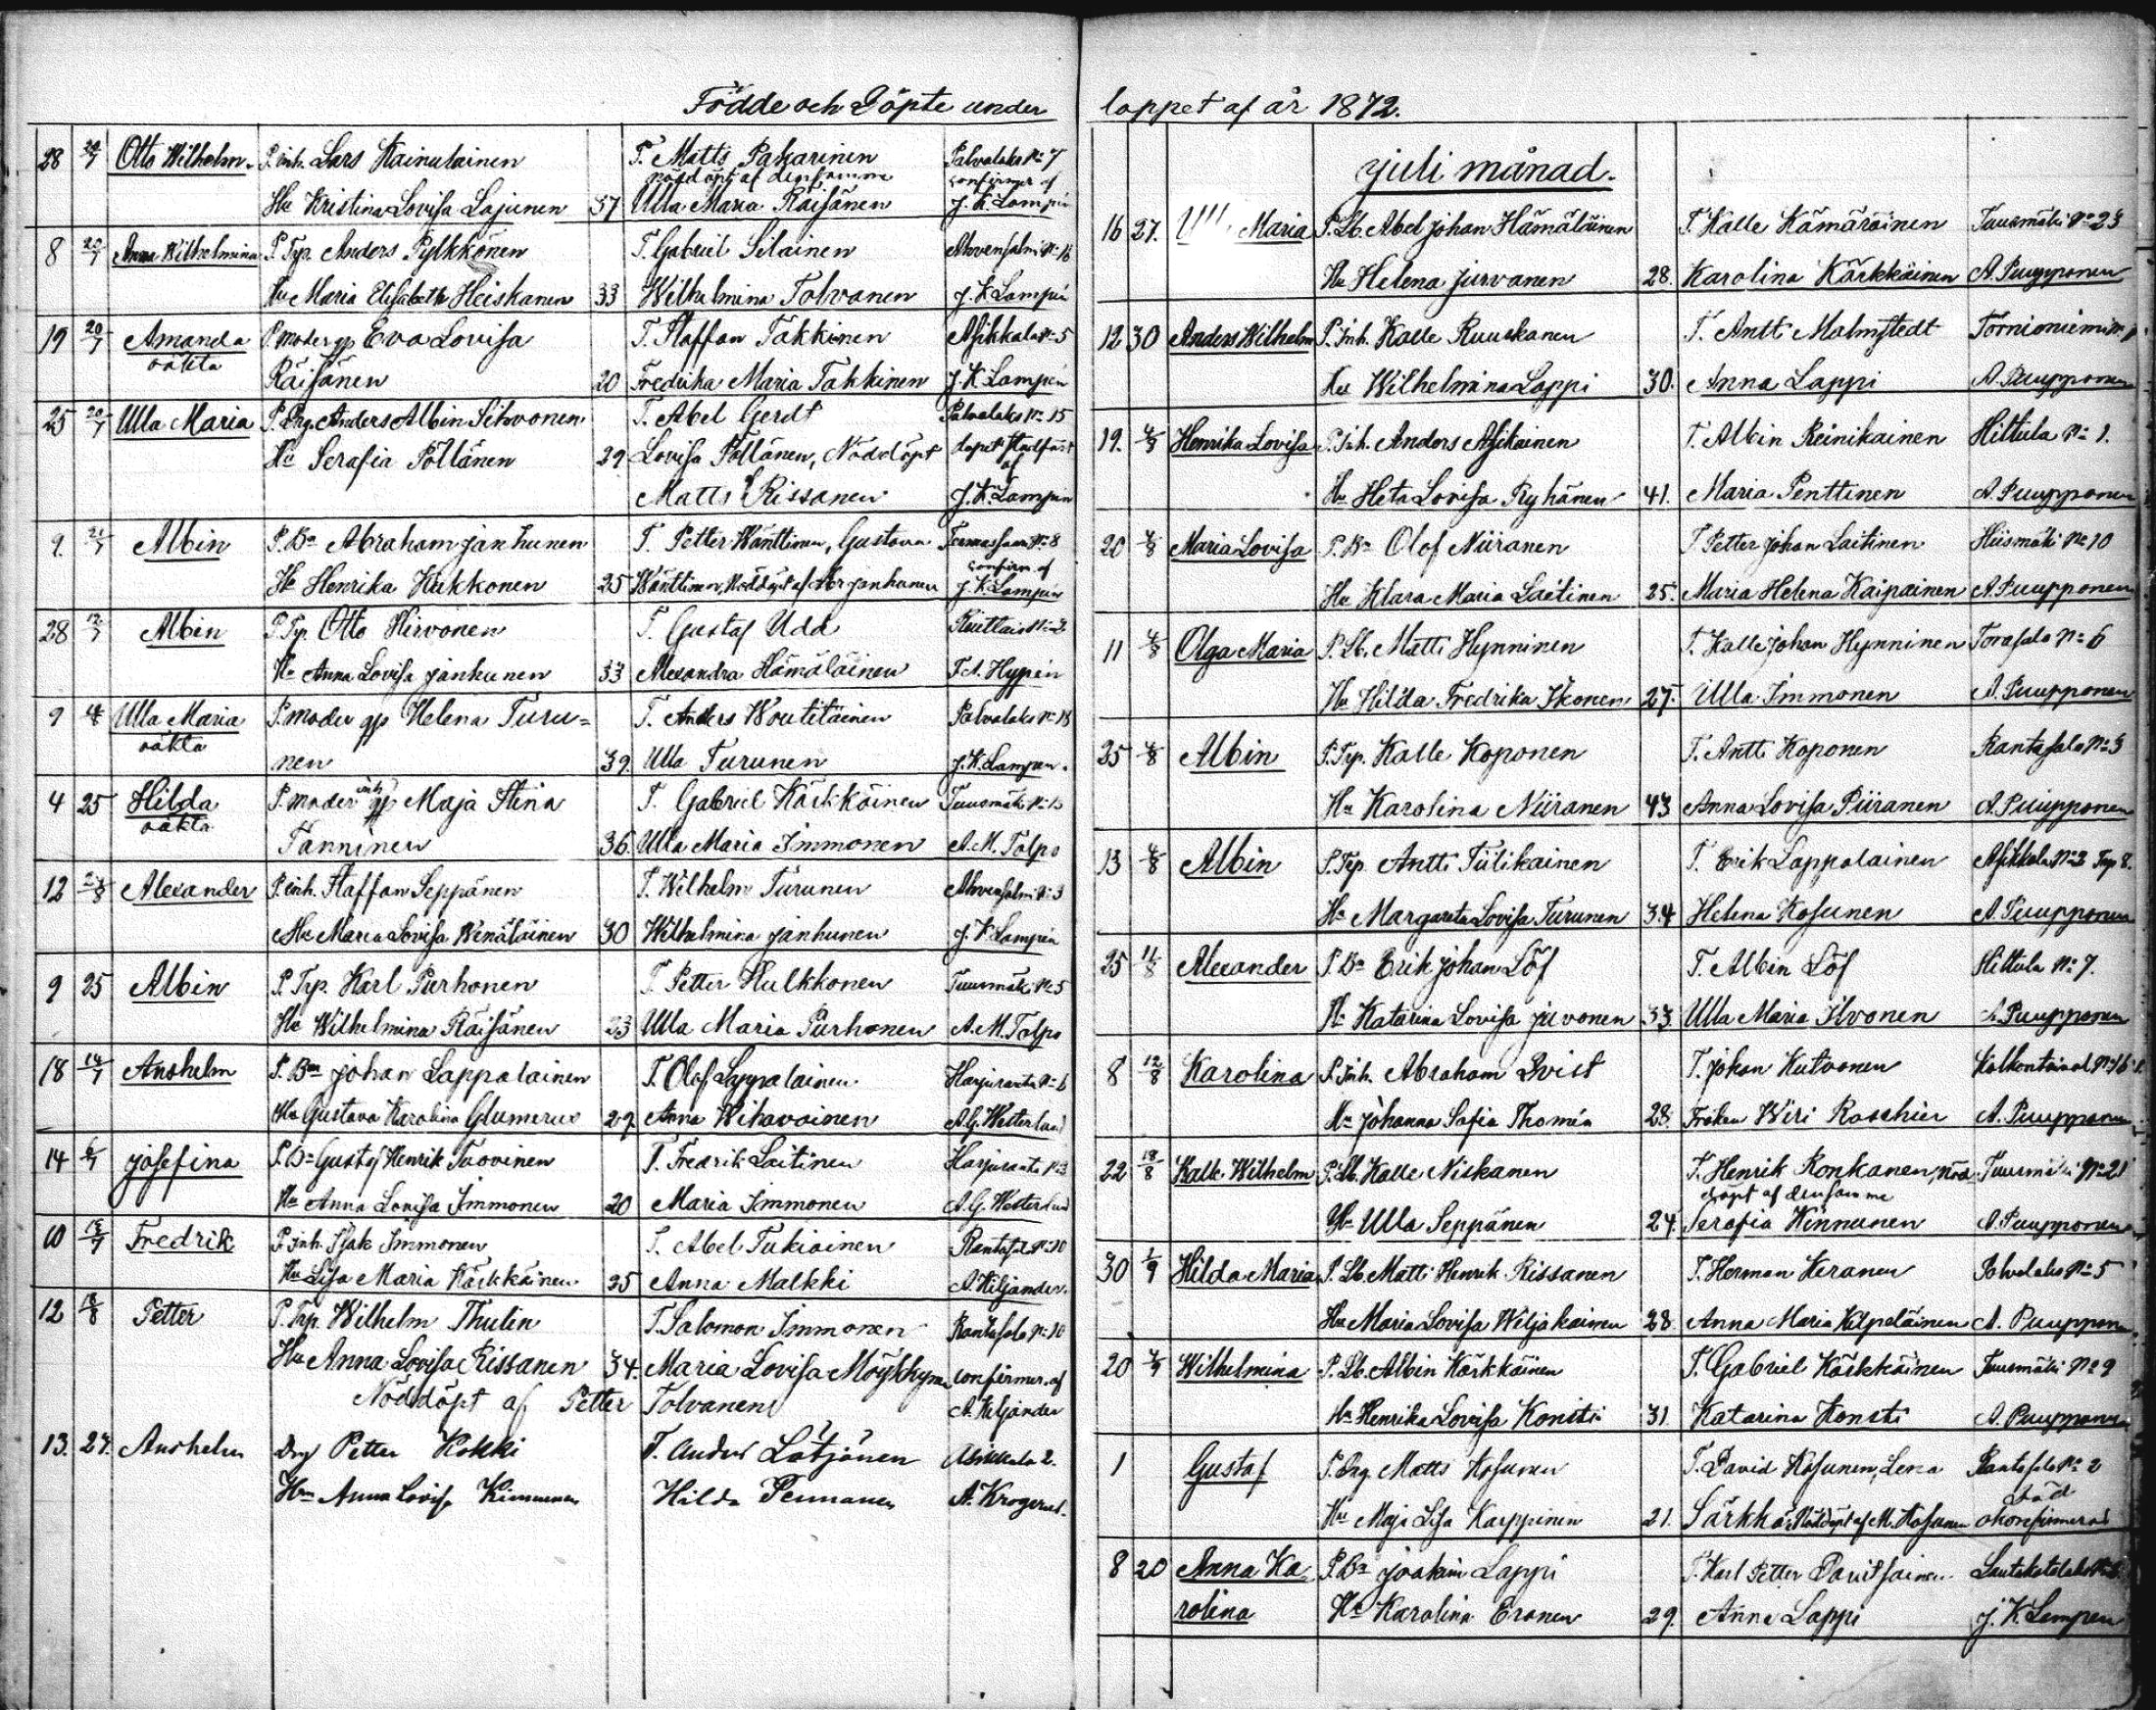 Födde och Döpte under
28 20/7 Otto Wilhelm. P. inh. Lars Kainulainen T. Matts Pakarinen Palvalaks No 7
nöddöpt af densamme confirmer af
Hu Kristina Lovisa Lajunen 37 Ulla Maria Räisänen J. K. Lampén
8 20/7 Anna Wilhelmina P. Trp. Anders Pylkkönen T. Gabriel Silainen Ahvensalmi No 16
Hu Maria Elisabeth Heiskanen 33 Wilhelmina Tolvanen J. K. Lampén
19 20/7 Amanda P. moder gp Eva Lovisa T. Staffan Takkinen Asikkala No 5
oäkta Räisänen 20 Fredrika Maria Takkinen J. K. Lampén
25 20/7 Ulla Maria P. Drg. Anders Albin Sihvonen T. Abel Gerdt Palvalaks No 15
Hu Serafia Pöllänen 29 Lovisa Pöllänen, Nöddöpt dopet stadfäst af
Matts Rissanen J. K. Lampén
9. 21/7 Albin P. Bn Abraham Janhunen T. Petter Wänttinen, Gustava No 8
confirm. af
Hu Henrika Kukkonen 25 Wänttinen, Nöddöpt af Abr Janhunen J. K. Lampén
28 12/7 Albin P. Trp. Otto Hirvonen T. Gustaf Udd No 2
Hu Anna Lovisa Janhunen 33 Alexandra Hämäläinen F. A. Hypén
9 Ulla Maria P. moder gp Helena Turu= T. Anders Woutilainen Palvalaks No 18
oäkta nen 39. Ulla Turunen J. K. Lampen.
4 25 Hilda P. moder inh gp Maja Stina T. Gabriel Kärkkäinen Tuusmäki
oäkta Tanninen 36. Ulla Maria Immonen A. M. Tolpo
12 Alexander P. inh. Staffan Seppänen T. Wilhelm Turunen Ahvensalmi No 3
Hu Maria Lovisa Wenäläinen 30 Wilhelmina Janhunen J. K. Lampén
9 25 Albin P. Trp. Karl Purhonen T. Petter Hulkkonen Tuusmäki No 5
Hu Wilhelmina Räisänen 23 Ulla Maria Purhonen A. M. Tolpo
18 14/7 Anshelm P. Bn Johan Lappalainen T. Olof Lappalainen Harjuranta No 6
Hu Gustava Karolina Glumerus 29 Anna Witavainen A. G. Westerlund
14 Josefina P. Bn Gustaf Henrik Tuovinen T. Fredrik Laitinen Harjuranta No 3
Hu Anna Lovisa Immonen 20 Maria Immonen A. G. Westerlund
10 Fredrik P. inh. Isak Immonen T. Abel Tukiainen Rantasal No 10
Hu Lisa Maria Kärkkäinen 25 Anna Malkki A. Kiljander.
12 18/8 Petter P. Trp. Wilhelm Thulin T. Salomon Immonen Rantasalo No 10
Hu Anna Lovisa Rissanen 34. Maria Lovisa Möykkynen confirmer. af
Nöddöpt af Petter Tolvanen A. Kiljander
13. 27. Anshelm Drg Petter Kokki T. Anders Lötjönen Asikkala 2.
Hu Anna Lovisa Kinnunen Hilda Pennanen A. Krogerus.
loppet af år 1872.
Juli månad.
16 27. Maria P. Lb. Abel Johan Hämäläinen T. Kalle Kämäräinen Tuusmäki No 23
Hu Helena Jurvanen 28. Karolina Kärkkäinen A. Puupponen
12 30 Anders Wilhelm P. Inh. Kalle Ruuskanen T. Antti Malmstedt Tornioniemi
Hu Wilhelmina Lappi 30. Anna Lappi A. Puupponen
19. 4/8 Henrika Lovisa P. Inh. Anders Asikainen T. Albin Reinikainen Hiltula No 1.
Hu Heta Lovisa Ryhänen 41. Maria Penttinen A. Puupponen
20 4/8 Maria Lovisa P. Bn Olof Niiranen T. Petter Johan Laitinen Hiismäki No 10
Hu Klara Maria Laitinen 25. Maria Helena Kaipainen A. Puupponen
11 4/8 Olga Maria P. Lb. Matti Hynninen T. Kalle Johan Hynninen Torasalo No 6
Hu Hilda Fredrika Ikonen 27. Ulla Immonen A. Puupponen
25 4/8 Albin P. Trp. Kalle Koponen T. Antti Koponen Rantasalo No 3
Hu Karolina Niiranen 43 Anna Lovisa Piiranen A. Puupponen
13 4/8 Albin P. Trp. Antti Tiilikainen T. Erik Lappalainen Asikkala No 2 Trp 8.
Hu Margareta Lovisa Turunen 34 Helena Kosunen A. Puupponen
25 11/8 Alexander P. Bn Erik Johan Löf T. Albin Löf Hiltula No 7.
Hu Katarina Lovisa Juvonen 33. Ulla Maria Ilvonen A. Puupponen
8 12/8 Karolina P. Inh. Abraham Qvist T. Johan Kutvonen No 16
Hu Johanna Sofia Thomén 28. Fröken Wiri Roschier A. Puupponen
22 18/8 Kalle Wilhelm P. Lb. Kalle Niskanen T. Henrik Ronkanen, nöd Tuusmäki No 21
döpt af densamme
Hu Ulla Seppänen 24. Serafia Kinnunen A. Puupponen
30 1/9 Hilda Maria P. Lb. Matti Henrik Rissanen T. Herman Keranen Palvalaks No 5
Hu Maria Lovisa Wiljakainen 28. Anna Maria Kilpeläinen A. Puupponen
20 Wilhelmina P. Lb. Albin Kärkkäinen T. Gabriel Kärkkäinen Tuusmäki No 9
Hu Henrika Lovisa Konsti 31. Katarina Konsti A. Puupponen
1 Gustaf P. Drg. Matts Kosunen T. David Kosunen, Lena Rantasalo No 2
Död
Hu Maja Lisa Karppinen 21. Särkkä, Nöddöpt af M. Kosunen okonfirmerad
8 20 Anna Ka- P. Bn Joakim Lappi T. Karl Petter Pauitsainen
rolina Hu Karolina Eronen 29. Anna Lappi J. K. Lampen